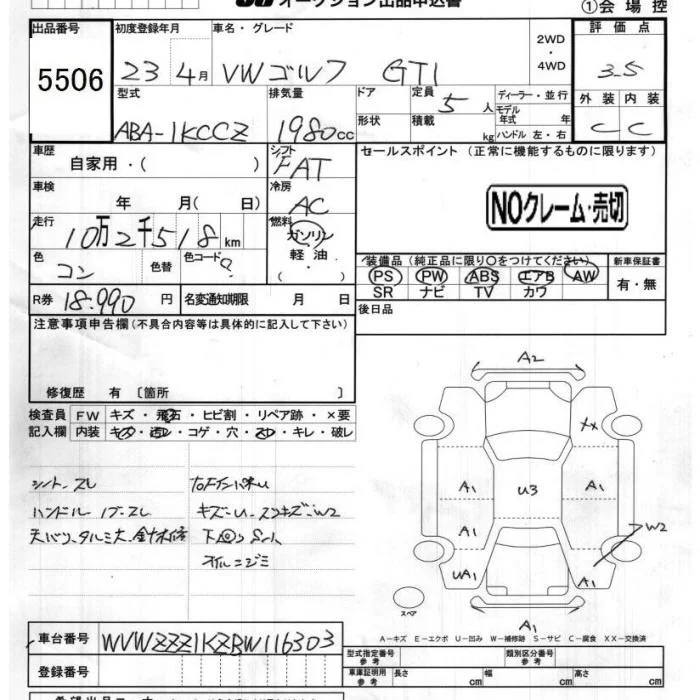 オークション出品申込書
①会場控
出品番号 初度登録年月 車名・グレード 2WD・4WD 評価点
5506 23 4月 VWゴルフ GTI 3.5
型式 排気量 ドア 定員 ディーラー・並行 外装 内装
ABA-1KCCZ 1980cc 5人 モデル年式 年 C C
形状 積載 kg ハンドル 左・右
車歴 シフト セールスポイント (正常に機能するものに限ります)
自家用・( ) FAT
車検 冷房
年 月( 日) AC
NOクレーム・売切
走行 燃料
10万2千518km ガソリン
色 色替 色コード 軽油
コン ?
・( )
装備品(純正品に限り○をつけてください) 新車保証書
PS PW ABS エアB AW 有・無
SR ナビ TV カワ
R券 18.990円 名変通知期限 月 日
後日品
注意事項申告欄(不具合内容等は具体的に記入して下さい)
修復歴 有 〔箇所 〕
検査員 FW キズ・飛石・ヒビ割・リペア跡・×要
記入欄 内装 キズ・汚レ・コゲ・穴・スレ・キレ・破レ
シート、スレ
ハンドル ノブ、スレ
キズ・U・スリキズ・W2
オイルニジミ
A2
XX
A1 U3 A1
A1 W2
UA1 A1
スペア
A1
A−キズ E−エクボ U−凹み W−補修跡 S−サビ C−腐食 XX−交換済
車台番号 WVWZZZ1KZBW116303
型式指定番号 参考 類別区分番号 参考
登録番号 車庫証明用 参考 長さ cm 幅 cm 高さ cm